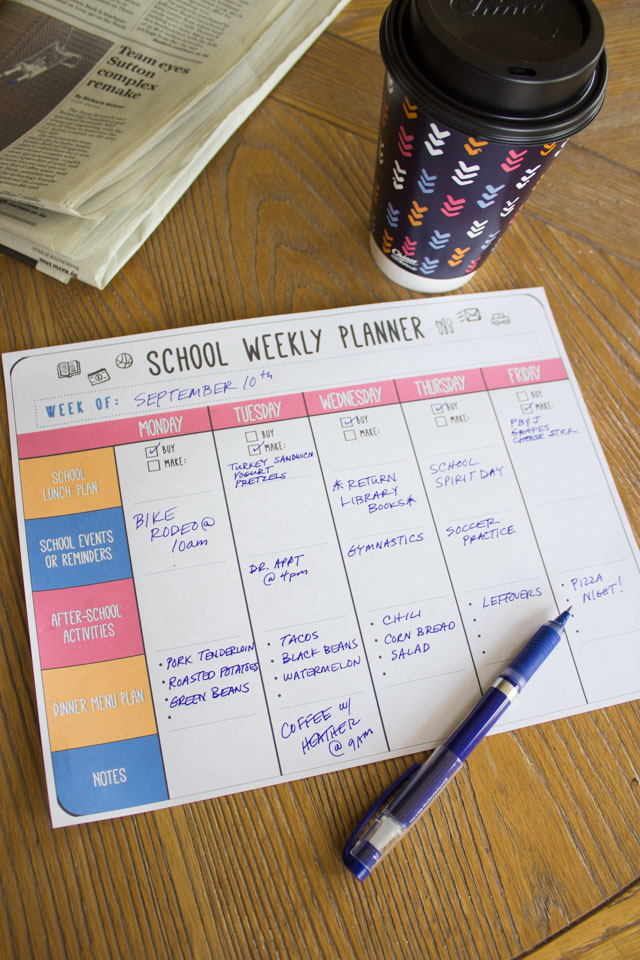 Team eyes
Sutton
complex
remake
Chinet
SCHOOL WEEKLY PLANNER
WEEK OF: SEPTEMBER 10th
MONDAY
TUESDAY
WEDNESDAY
THURSDAY
FRIDAY
SCHOOL
LUNCH PLAN
BUY
MAKE:
BUY
MAKE:
TURKEY SANDWICH
YOGURT
PRETZELS
BUY
MAKE:
BUY
MAKE:
BUY
MAKE:
PB&J
GRAPES
CHEESE STICK
SCHOOL EVENTS
OR REMINDERS
BIKE
RODEO @
10am
*RETURN
LIBRARY
BOOKS*
SCHOOL
SPIRIT DAY
AFTER-SCHOOL
ACTIVITIES
DR. APPT
@ 4pm
GYMNASTICS
SOCCER
PRACTICE
DINNER MENU PLAN
• PORK TENDERLOIN
• ROASTED POTATOES
• GREEN BEANS
•
• TACOS
• BLACK BEANS
• WATERMELON
•
• CHILI
• CORN BREAD
• SALAD
•
• LEFTOVERS
•
•
•
• PIZZA
NIGHT!
•
•
•
NOTES
COFFEE W/
HEATHER
@ 9AM